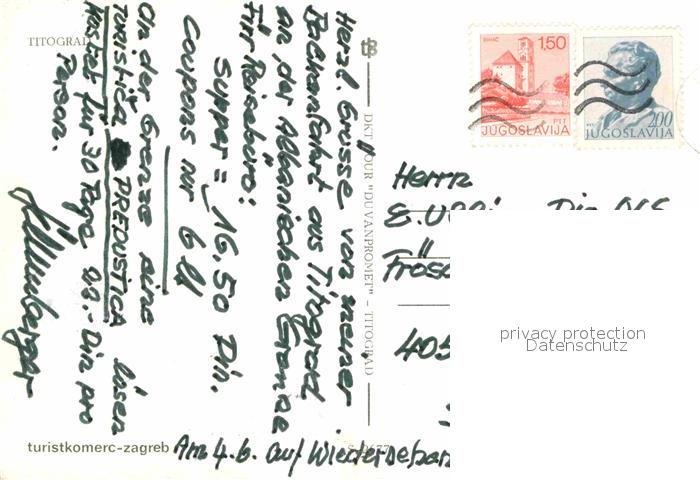 TITOGRAD
Herzl. Grüsse von meiner
Badnerfahrt aus Titograd
an der Albanischen Grenze
Für Reisebüro:
Supper = 16,50 Din.
Coupons nur 6 lt
An der Grenze eine
TURISTIČA PREDUSTICA lösen
kostet für 30 Tage 09.- Din pro
Person.
DKT "OUR "DUVANPROMET" - TITOGRAD
BIHAĆ 1,50
PTT
JUGOSLAVIJA
2,00
JUGOSLAVIJA
Herrn
E.
405
privacy protection
Datenschutz
turistkomerc-zagreb
Am 4.6. auf Wiedersehen